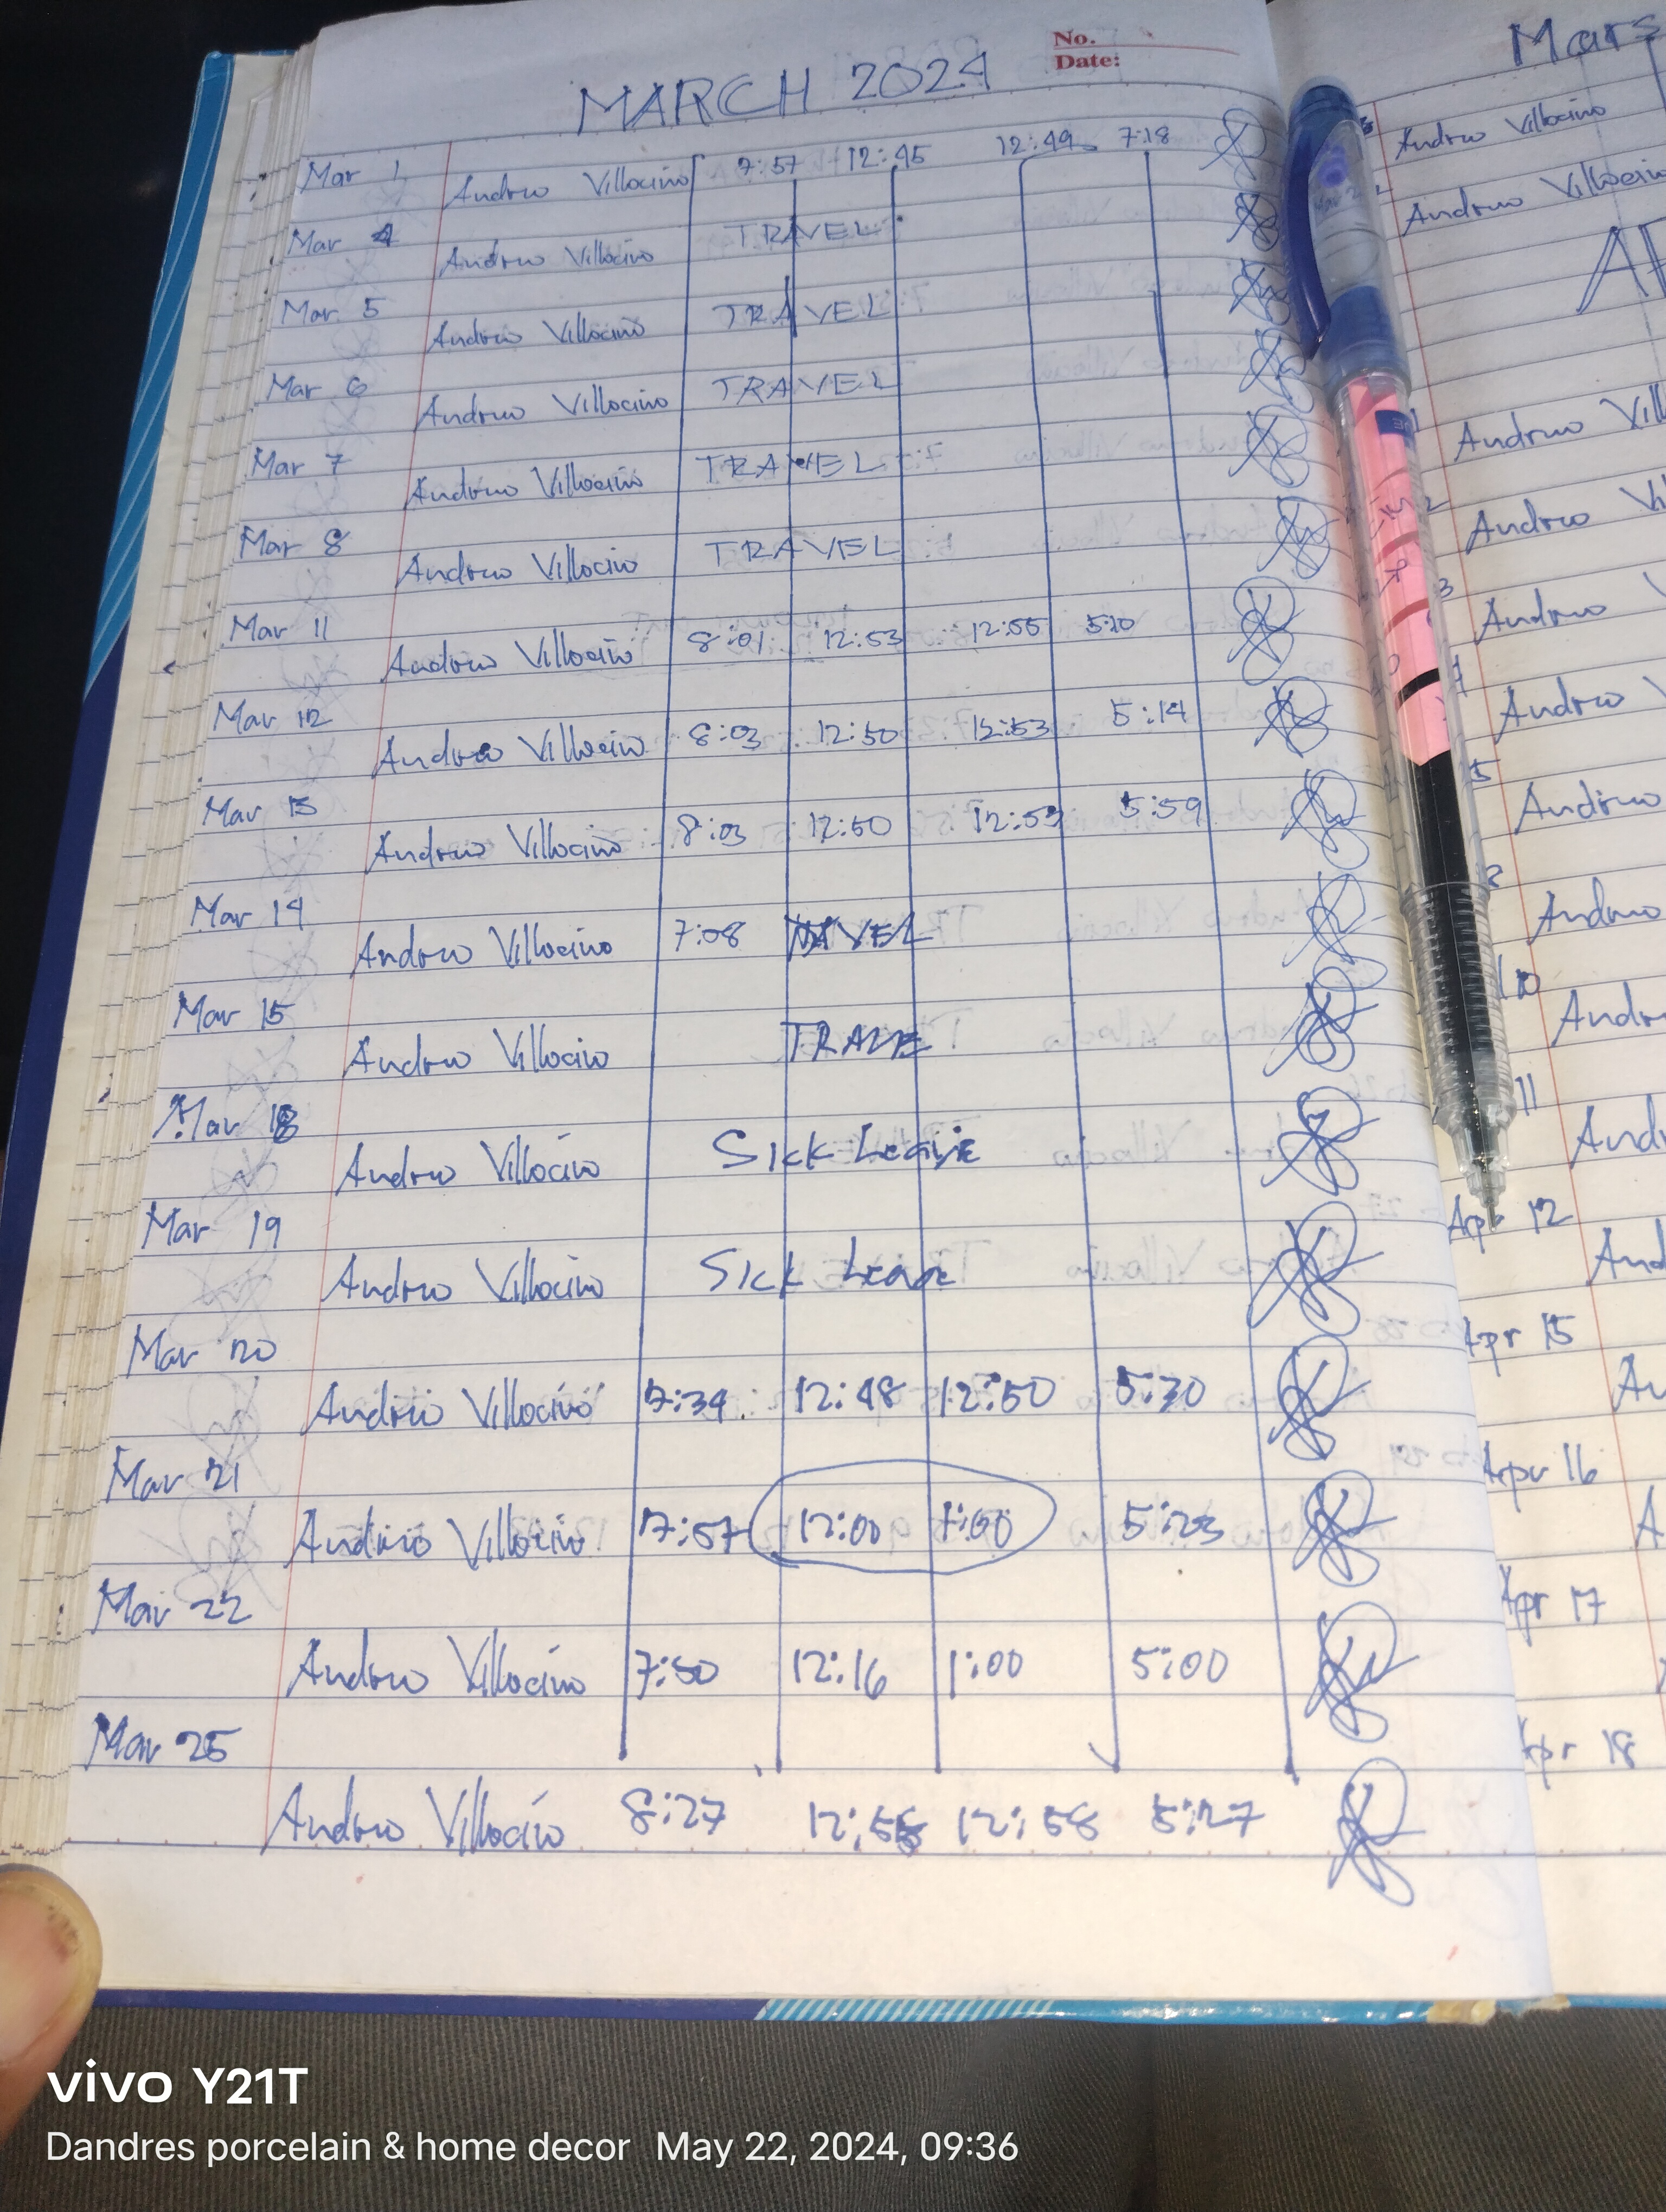 No.
Date:
MARCH 2024
Mar 1 Andrew Villocino 7:57 12:45 12:49 7:18
Mar 4 Andrew Villocino TRAVEL
Mar 5 Andrew Villocino TRAVEL
Mar 6 Andrew Villocino TRAVEL
Mar 7 Andrew Villocino TRAVEL
Mar 8 Andrew Villocino TRAVEL
Mar 11 Andrew Villocino 8:01 12:53 12:55 5:10
Mar 12 Andrew Villocino 8:03 12:50 12:53 5:14
Mar 13 Andrew Villocino 8:03 12:50 12:53 5:59
Mar 14 Andrew Villocino 7:08 TRAVEL
Mar 15 Andrew Villocino
Mar 18 Andrew Villocino Sick Leave
Mar 19 Andrew Villocino Sick Leave
Mar 20 Andrew Villocino 7:34 12:48 12:50 5:30
Mar 21 Andrew Villocino 7:57 12:00 1:00 5:23
Mar 22 Andrew Villocino 7:50 12:16 1:00 5:00
Mar 25 Andrew Villocino 8:27 12:58 5:27
Andrew Villocino
Andrew Villocino
Andrew
Andrew
Andrew
Andrew
Andrew
Apr 12
Apr 15
Apr 16
Apr 17
Apr 18
vivo Y21T
Dandres porcelain & home decor May 22, 2024, 09:36